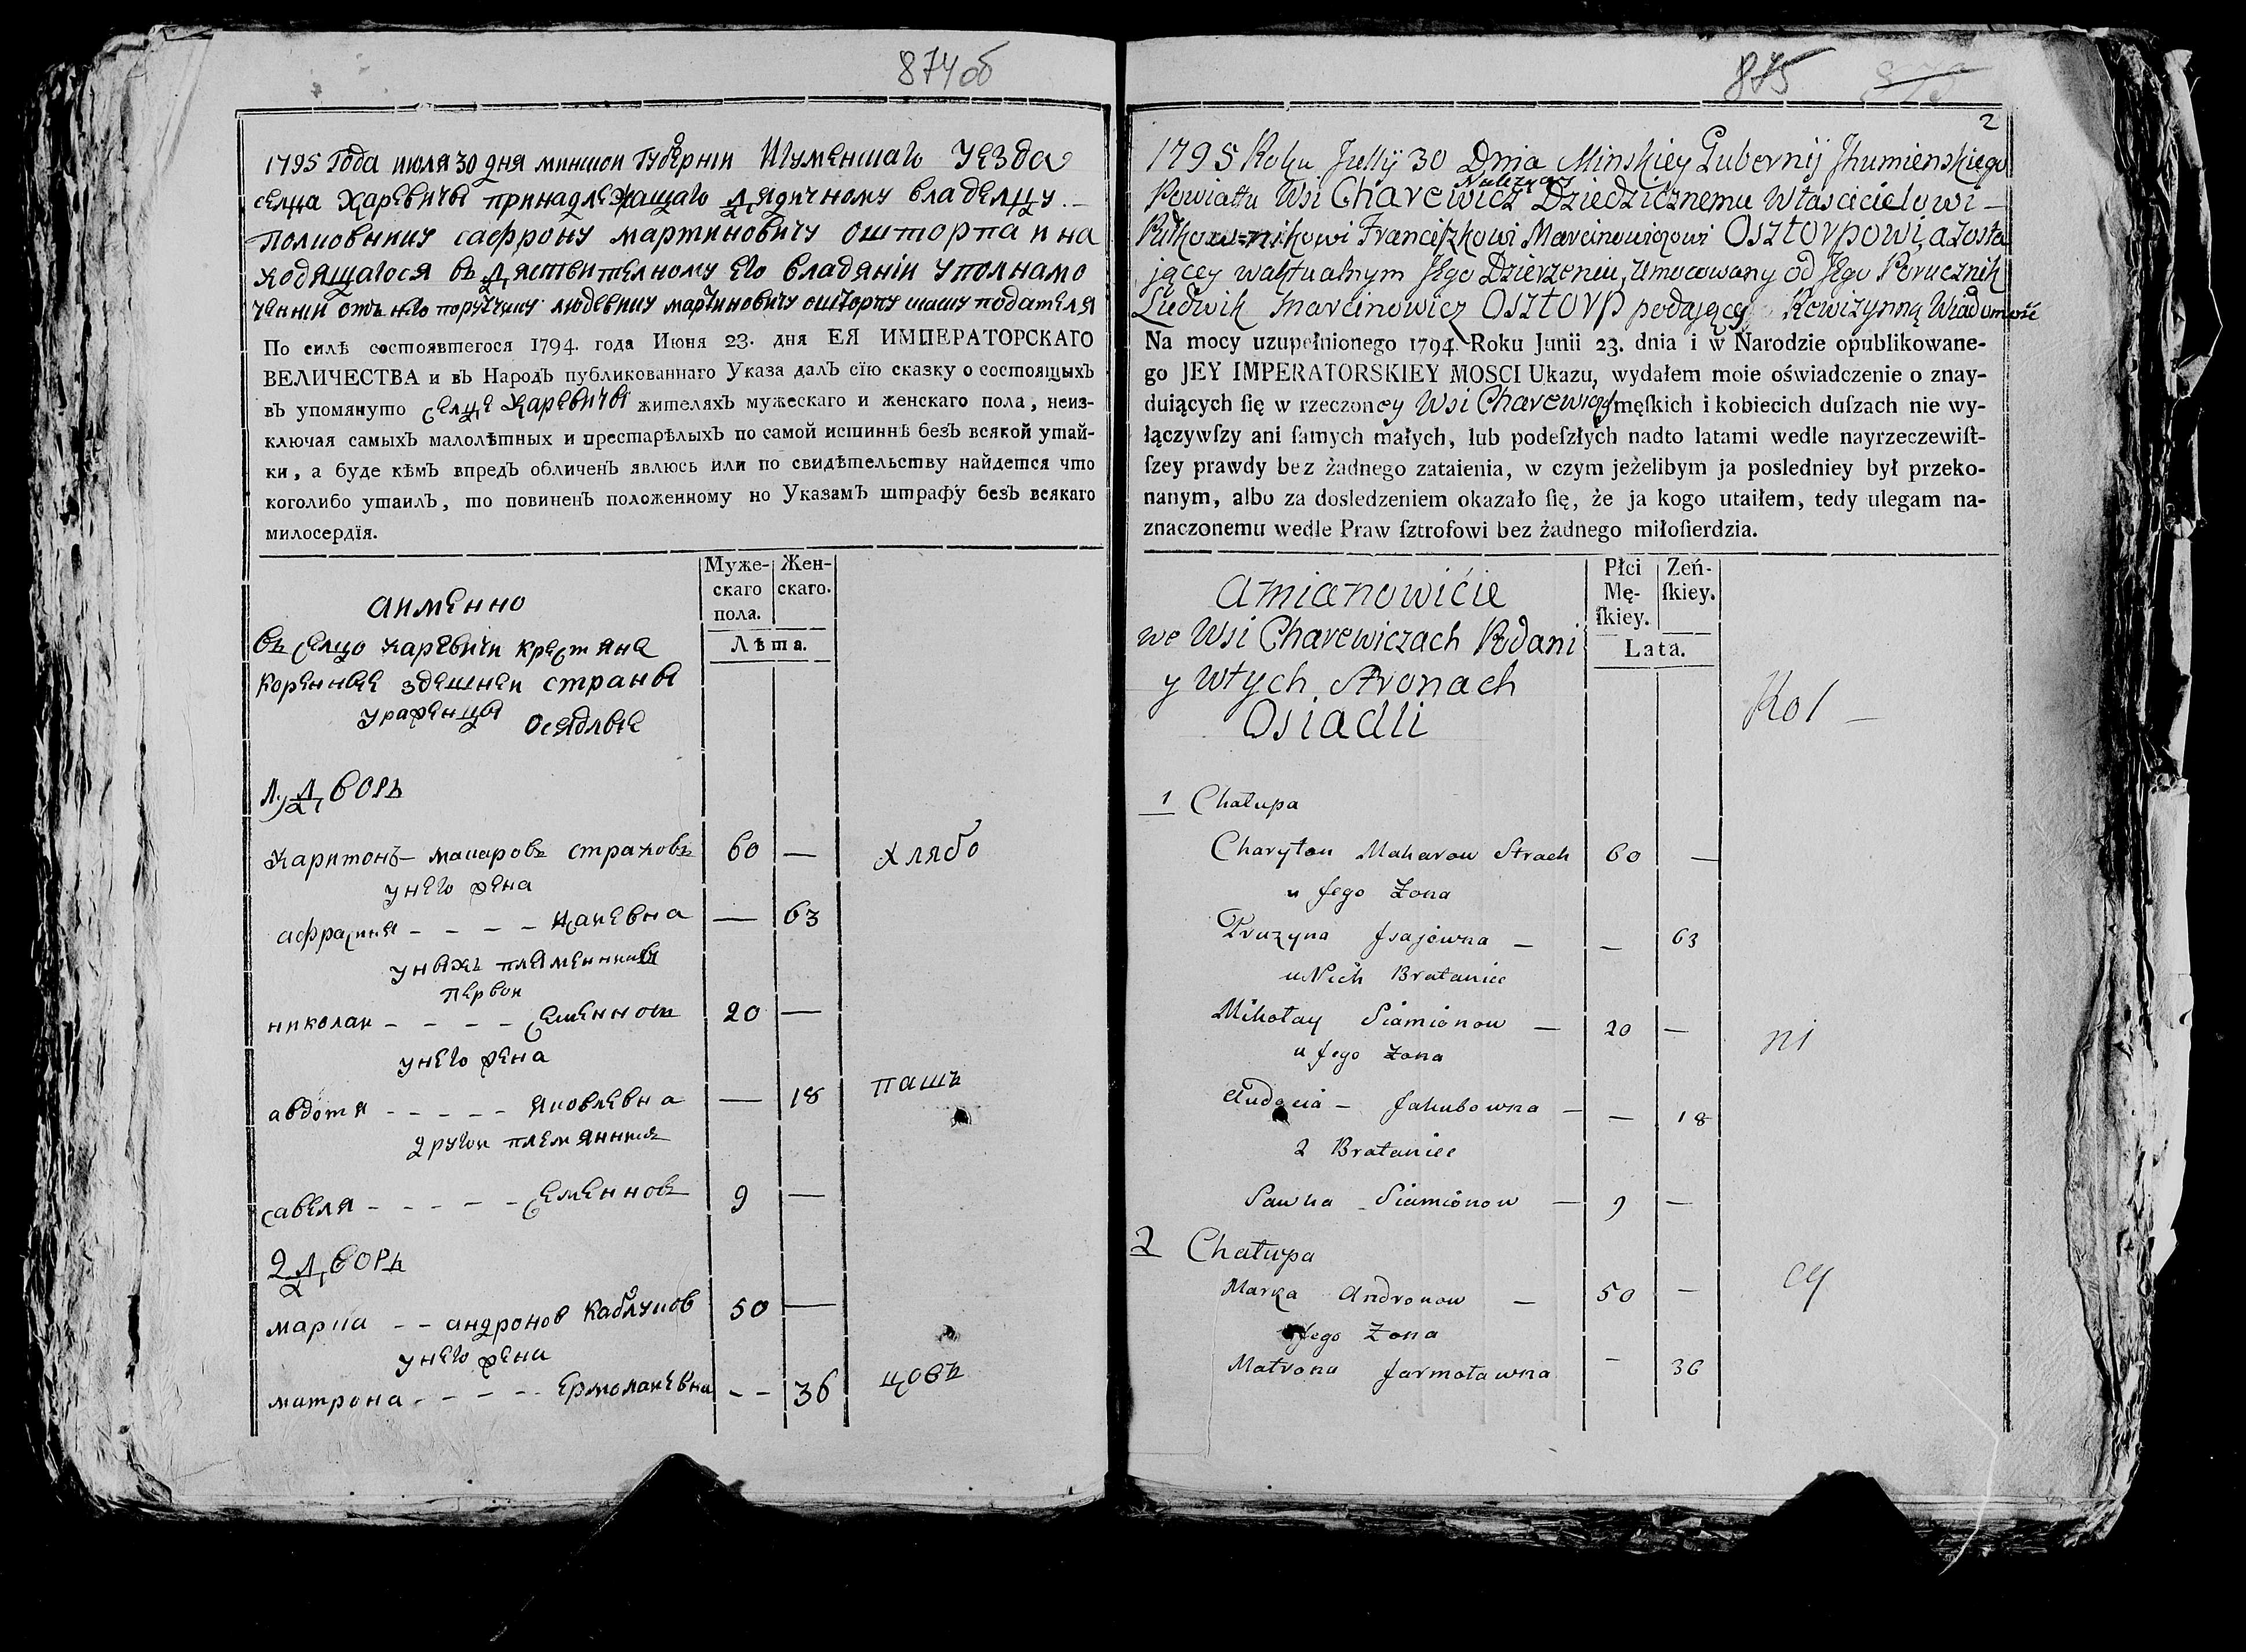 874 об
1795 Года июля 30 дня минской Губернiи Игуменшаго Уезда
селца Харевичы принадлежащаго дядичному владелцу
полковнику сафрону мартиновичу ошторпа и на
ходящагося въ дяствителному его владянiи уполнамо
ченнiй отъ него поручику людевику мартиновичу ошторпу подателя
По силѣ состоявшегося 1794. года Июня 23. дня ЕЯ ИМПЕРАТОРСКАГО
ВЕЛИЧЕСТВА и въ Народъ публикованнаго Указа далъ сїю сказку о состоящыхъ
въ упомянуто селце Харевичы жителяхъ мужескаго и женскаго пола, неиз-
ключая самыхъ малолѣтныхъ и престарѣлыхъ по самой истиннѣ безъ всякой утай-
ки, а буде кѣмъ впредъ обличенъ явлюсь или по свидѣтельству найдется что
коголибо утаилъ, то повиненъ положенному но Указамъ штрафу безъ всякаго
милосердїя.
Муже-
скаго
пола.
Жен-
скаго.
Лѣта.
аименно
въ селцо харевичи крестяне
коренные здешней страны
ураженцы осядлые
1 дворъ
харитонъ — макаровъ страховъ 60 —
унего жена
афрасиня — 63
унихъ племенники
первой
николаи семеновъ 20 —
унего жена
авдотя яковлевна — 18
другой племянникъ
савеля семеновъ 9 —
2 дворъ
марка андронов каблуков 50 —
унего жена
матрона ермолаевна — 36
хлябо
пашъ
цовъ
875
2
1795 Roku Jullÿ 30 Dnia Minskiey Gubernij Jhumienskiego
Powiattu Wsi Charewicz Należącey Dziedzicznemu Własciciełowi —
Pułkownikowi Franciszkowi Marcinowiczowi Osztorpowi, a zosta
jącey waktualnym Jego Dzierzeniu, Umocowany od Jego Porucznik
Ludwik Marcinowicz Osztorp podający Rewizynną Wiadomość
Na mocy uzupełnionego 1794. Roku Junii 23. dnia i w Narodzie opublikowane-
go JEY IMPERATORSKIEY MOSCI Ukazu, wydałem moie oświadczenie o znay-
duiących ſię w rzeczoney Wsi Charewiczach męſkich i kobiecich duſzach nie wy-
łączywſzy ani ſamych małych, lub podeſzłych nadto latami wedle nayrzeczewiſt-
ſzey prawdy bez żadnego zataienia, w czym jeżelibym ja posledniey był przeko-
nanym, albo za dosledzeniem okazało ſię, że ja kogo utaiłem, tedy ulegam na-
znaczonemu wedle Praw ſztrofowi bez żadnego miłoſierdzia.
Płci
Mę-
ſkiey.
Zeń-
ſkiey.
Lata.
Amianowićie
we Wsi Charewiczach Podani
y wtych Stronach
Osiadli
1 Chałupa
Charyton Makarow Strach 60 —
u Jego Żona
Pruzyna Jsajowna — — 63
u Nich Brataniec
Mikołay Siamionow — 20 —
u Jego Zona
Audocia — Jakubowna — — 18
2 Brataniec
Sawka Siamionow — 9 —
2 Chałupa
Marka Andronow — 50 —
Jego Zona
Matrona Jarmoławna — 36
Kol —
ni
cy